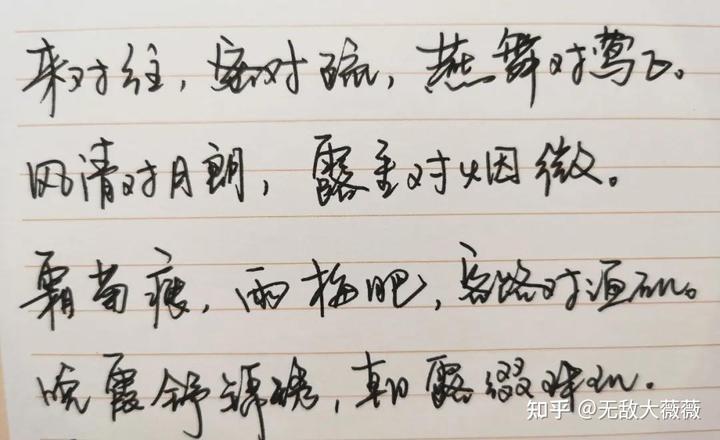 来对往，密对疏，燕舞对莺飞。
风清对月朗，露重对烟微。
霜菊瘦，雨梅肥，客路对渔矶。
晚霞舒锦绣，朝露缀珠玑。
知乎 @无敌大薇薇